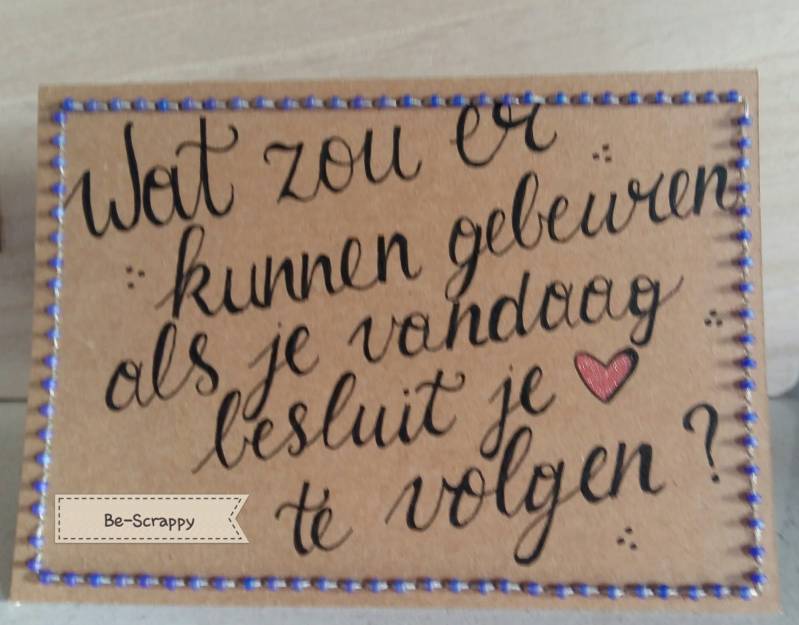 Wat zou er
kunnen gebeuren
als je vandaag
besluit je ♥
te volgen?
Be-Scrappy